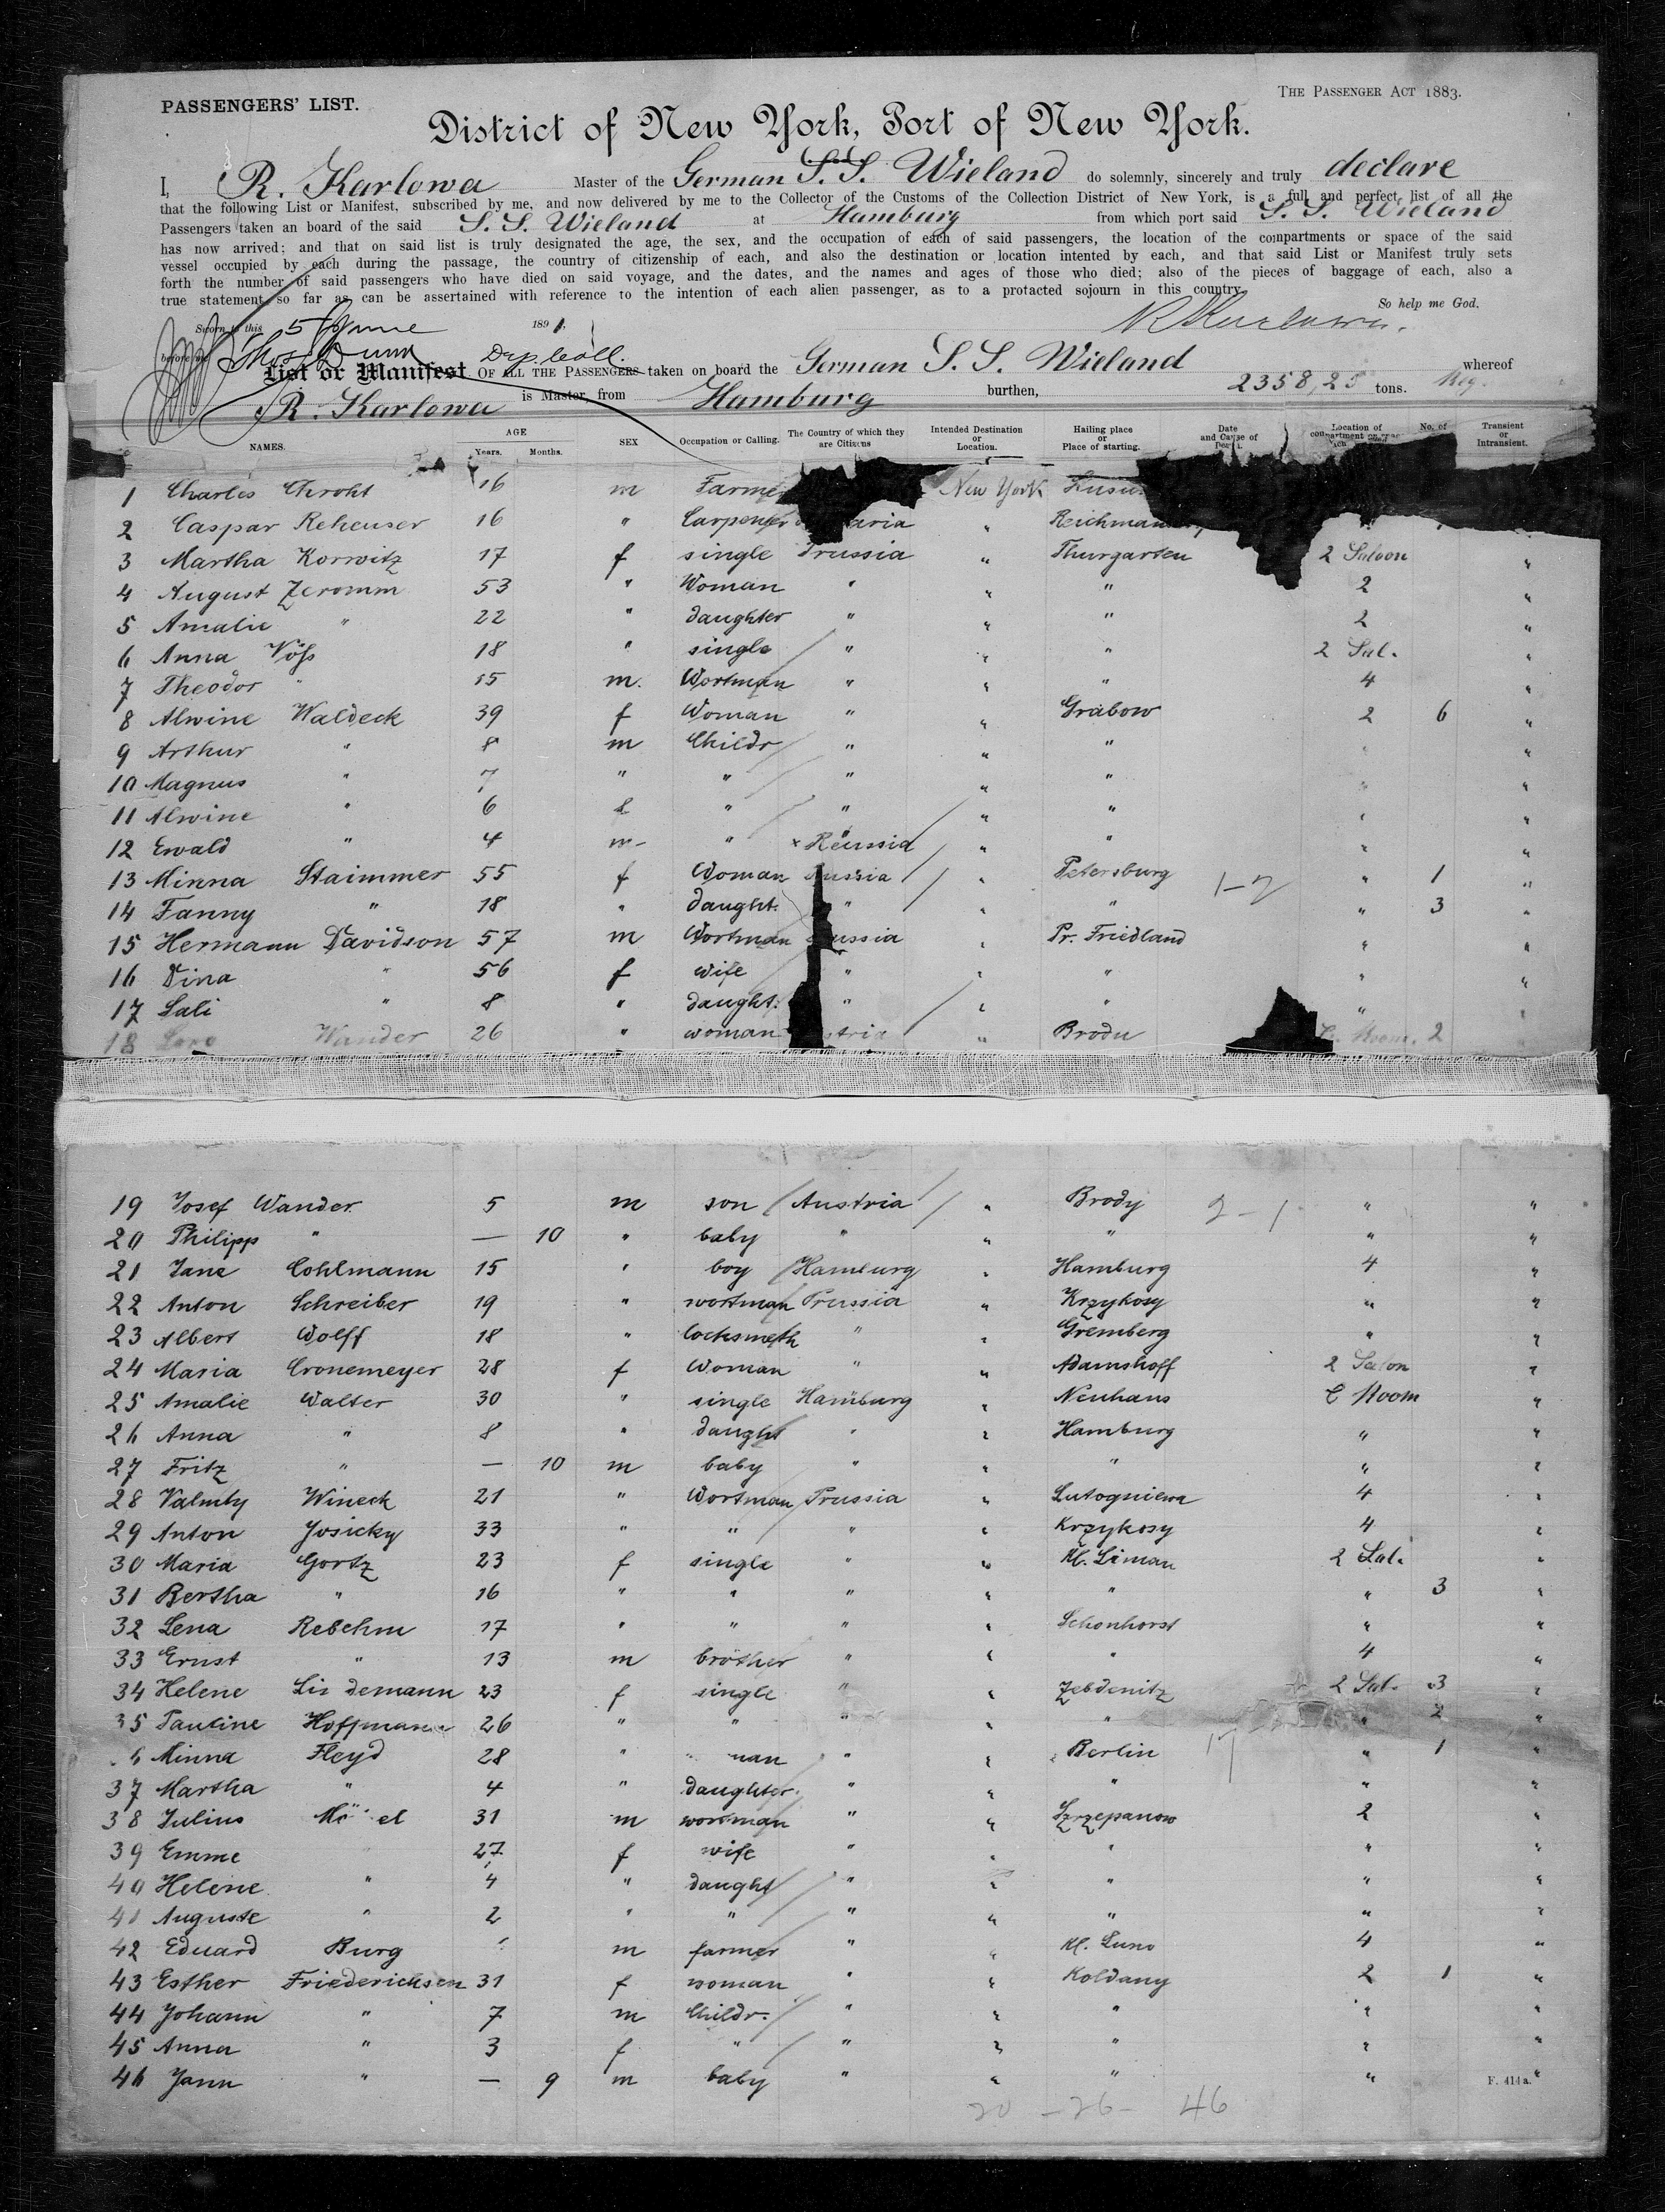 PASSENGERS' LIST.
THE PASSENGER ACT 1883.
District of New York, Port of New York.
I, R. Karlowa Master of the German S. S. Wieland do solemnly, sincerely and truly declare
that the following List or Manifest, subscribed by me, and now delivered by me to the Collector of the Customs of the Collection District of New York, is a full and perfect list of all the
Passengers taken an board of the said S. S. Wieland at Hamburg from which port said S. S. Wieland
has now arrived; and that on said list is truly designated the age, the sex, and the occupation of each of said passengers, the location of the compartments or space of the said
vessel occupied by each during the passage, the country of citizenship of each, and also the destination or location intented by each, and that said List or Manifest truly sets
forth the number of said passengers who have died on said voyage, and the dates, and the names and ages of those who died; also of the pieces of baggage of each, also a
true statement so far as can be assertained with reference to the intention of each alien passenger, as to a protacted sojourn in this country.
So help me God.
Sworn to this 5 June 1891.
R Karlowa.
before me Thos Dunn Dep. Coll.
List or Manifest OF ALL THE PASSENGERS taken on board the German S. S. Wieland whereof
R. Karlowa is Master, from Hamburg burthen, 2358,25 tons. Reg.
NAMES. AGE Years. Months. SEX Occupation or Calling. The Country of which they are Citizens Intended Destination or Location. Hailing place or Place of starting. Date and Cause of Location of No. of Transient or Intransient.
1 Charles 16 m Farmer New York
2 Caspar Reheuser 16 " Carpenter "
3 Martha Korwitz 17 f single Prussia " Thurgarten 2 Saloon "
4 August Jeromm 53 " Woman " " " 2 "
5 Amalie " 22 " daughter " " " 2 "
6 Anna Vöss 18 " single " " " 2 Sal. "
7 Theodor " 15 m. Wortman " " " 4 "
8 Alwine Waldeck 39 f Woman " " Grabow 2 6 "
9 Arthur " 8 m Childr " " " " "
10 Magnus " 7 " " " " " " "
11 Alwine " 6 f " " " " " "
12 Ewald " 4 m - " Russia " " " "
13 Minna Staimmer 55 f Woman " Petersburg 1-2 " 1 "
14 Fanny " 18 " daught. " " " " 3 "
15 Hermann Davidson 57 m Wortman " Pr. Friedland " "
16 Dina " 56 f wife " " " " "
17 Sali " 8 " daught. " " " " "
18 Wander 26 " woman " Brodu 2 "
19 Josef Wander 5 m son Austria " Brody 2-1 " "
20 Philipp " — 10 " baby " " " " "
21 Jane Cohlmann 15 " boy Hamburg " Hamburg 4 "
22 Anton Schreiber 19 " wortman Prussia " Krzykosy " "
23 Albert Wolff 18 " locksmeth " " Gremberg " "
24 Maria Cronemeyer 28 f Woman " " Adamshoff 2 Salon "
25 Amalie Walter 30 " single Hamburg " Neuhaus C Room "
26 Anna " 8 " daught " " Hamburg " "
27 Fritz " — 10 m baby " " " " "
28 Valenty Wineck 21 " Wortman Prussia " Lutogniewa 4 "
29 Anton Josicky 33 " " " " Krzykosy 4 "
30 Maria Gortz 23 f single " " Kl. Liman 2 Sal. "
31 Bertha " 16 " " " " " " 3 "
32 Lena Rebehm 17 " " " " Schonhorst " "
33 Ernst " 13 m brother " " " 4 "
34 Helene Lindemann 23 f single " " Zebdenitz 2 Sal. 3 "
35 Pauline Hoffmann 26 " " " " " " 2 "
6 Minna Fleyd 28 " man " " Berlin " 1 "
37 Martha " 4 " daughter " " " " "
38 Julius 31 m wortman " " Szrzepanow 2 "
39 Emme " 27 f wife " " " " "
40 Helene " 4 " daught " " " " "
41 Auguste " 2 " " " " " " "
42 Eduard Burg m farmer " " Kl. Luno 4 "
43 Esther Friederichsen 31 f woman " " Koldany 2 1 "
44 Johann " 7 m Childr. " " " " "
45 Anna " 3 f " " " " " "
46 Jann " — 9 m baby " " " " "
F. 414a.
20 - 26 - 46